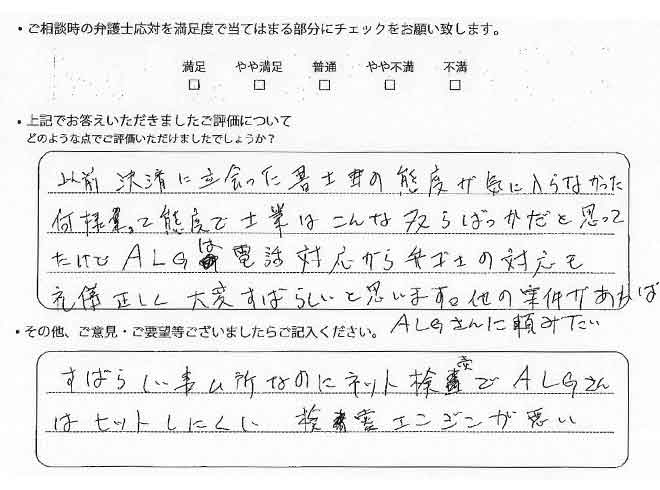 ・ご相談時の弁護士応対を満足度で当てはまる部分にチェックをお願い致します。
満足 やや満足 普通 やや不満 不満
□ □ □ □ □
・上記でお答えいただきましたご評価について
どのような点でご評価いただけましたでしょうか?
以前 決済に立会った書士の態度が気に入らなかった
何様業って態度で士業はこんな奴らばっかだと思って
たけど ALGは 電話対応から弁ゴ士の対応も
礼儀正しく 大変すばらしいと思います。他の案件があれば
ALGさんに頼みたい
・その他、ご意見・ご要望等ございましたらご記入ください。
すばらしい事ム所なのにネット検索でALGさん
はヒットしにくい 検索エンジンが悪い